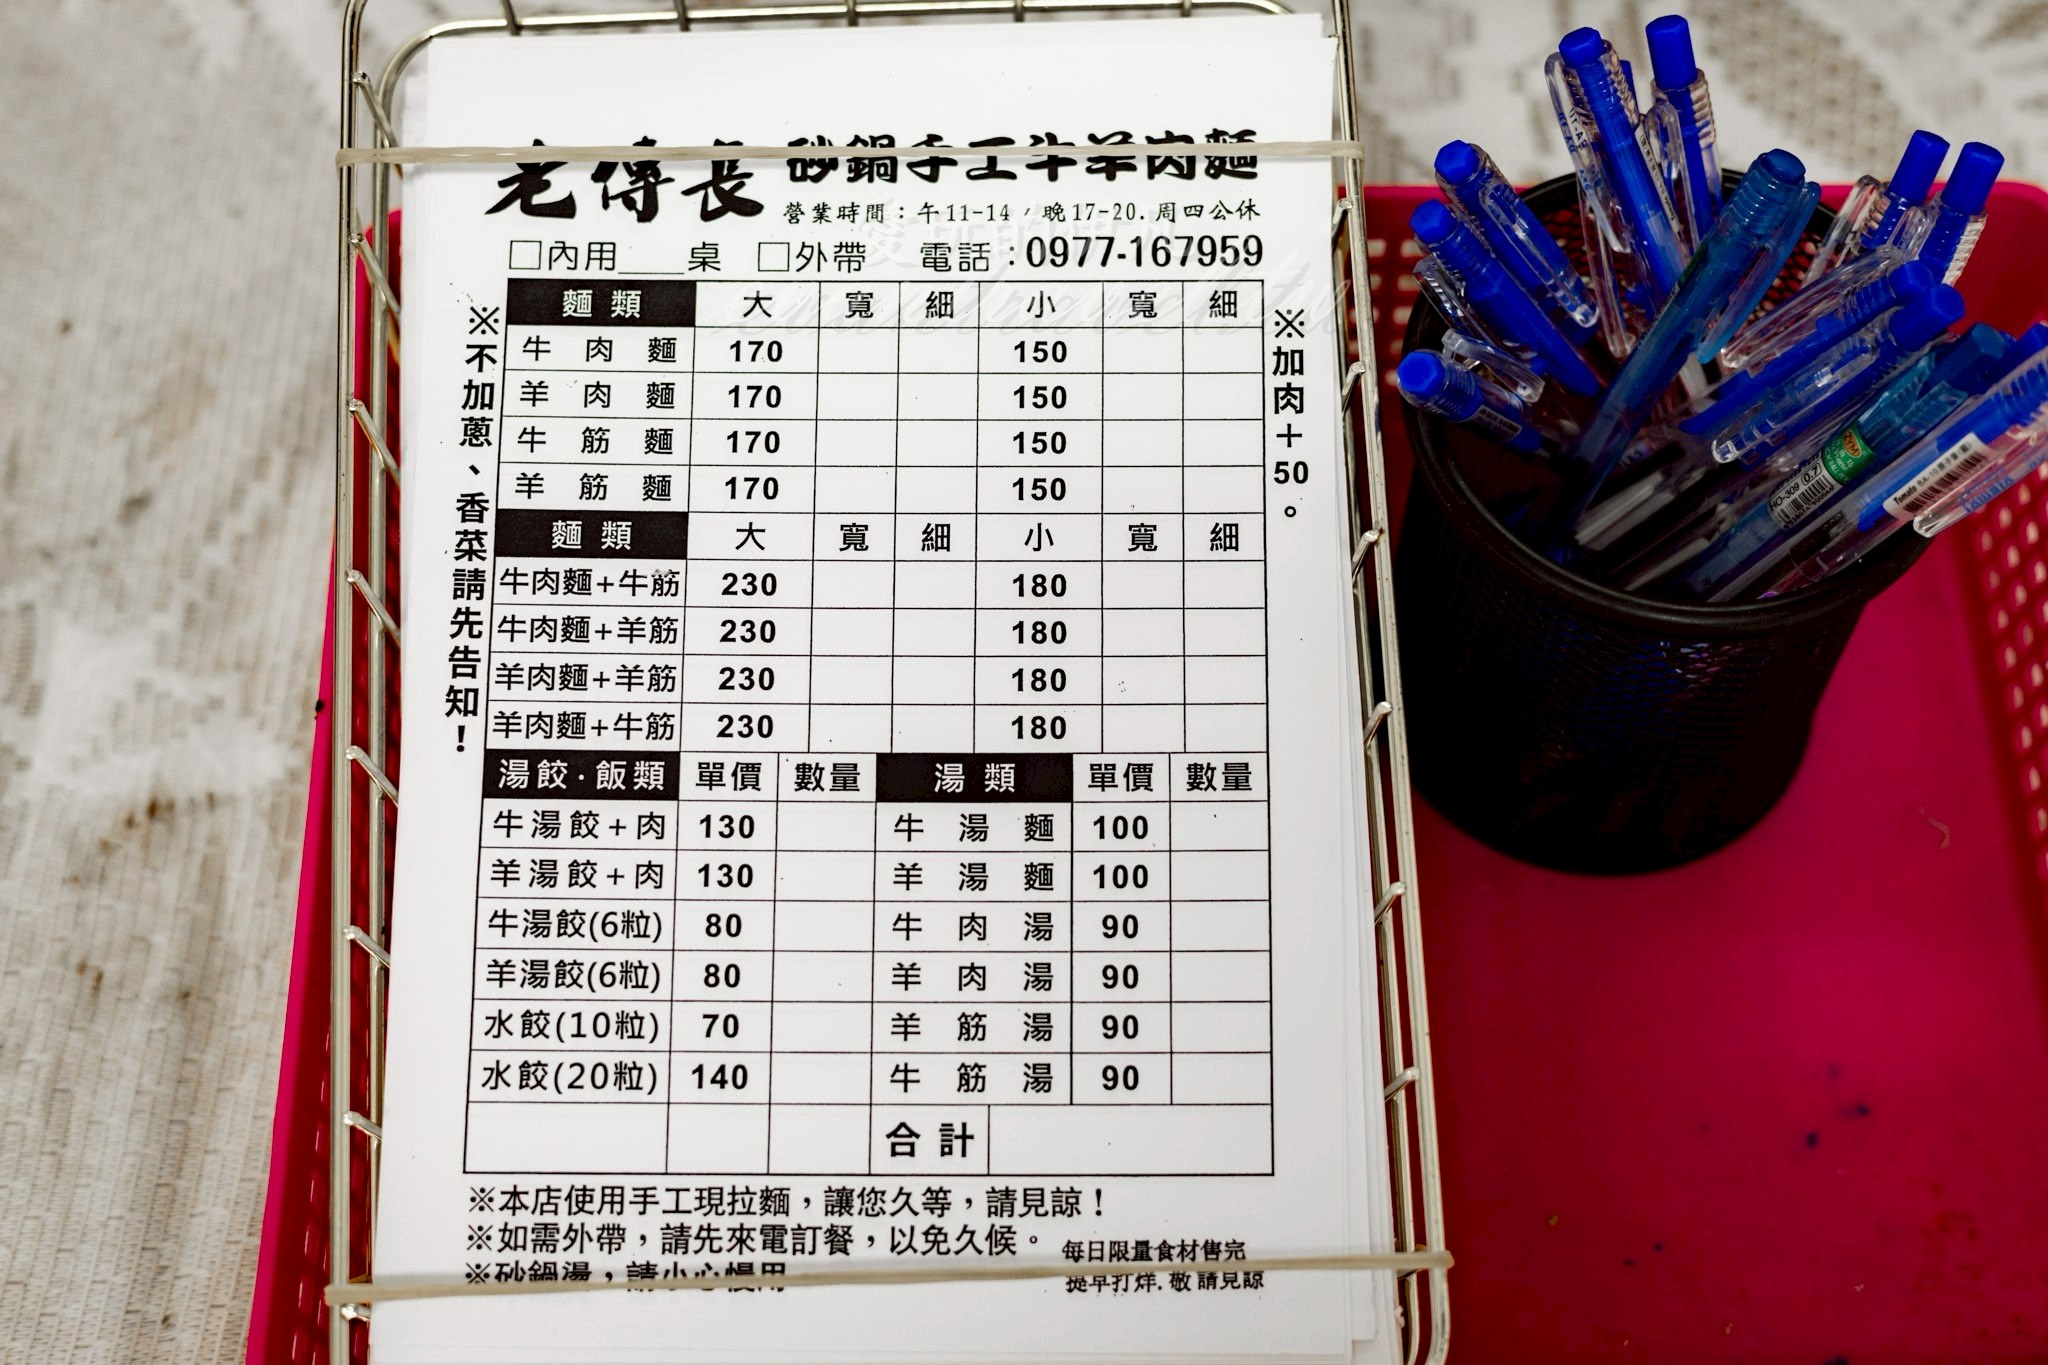 老傳長 砂鍋手工牛羊肉麵
營業時間：午11-14，晚17-20.周四公休
□內用____桌 □外帶 電話：0977-167959
※不加蔥、香菜請先告知！
※加肉＋50。
麵類 大 寬 細 小 寬 細
牛肉麵 170 150
羊肉麵 170 150
牛筋麵 170 150
羊筋麵 170 150
麵類 大 寬 細 小 寬 細
牛肉麵+牛筋 230 180
牛肉麵+羊筋 230 180
羊肉麵+羊筋 230 180
羊肉麵+牛筋 230 180
湯餃·飯類 單價 數量 湯類 單價 數量
牛湯餃+肉 130 牛湯麵 100
羊湯餃+肉 130 羊湯麵 100
牛湯餃(6粒) 80 牛肉湯 90
羊湯餃(6粒) 80 羊肉湯 90
水餃(10粒) 70 羊筋湯 90
水餃(20粒) 140 牛筋湯 90
合計
※本店使用手工現拉麵，讓您久等，請見諒！
※如需外帶，請先來電訂餐，以免久候。
※砂鍋湯，請小心慢用
每日限量食材售完
提早打烊.敬請見諒